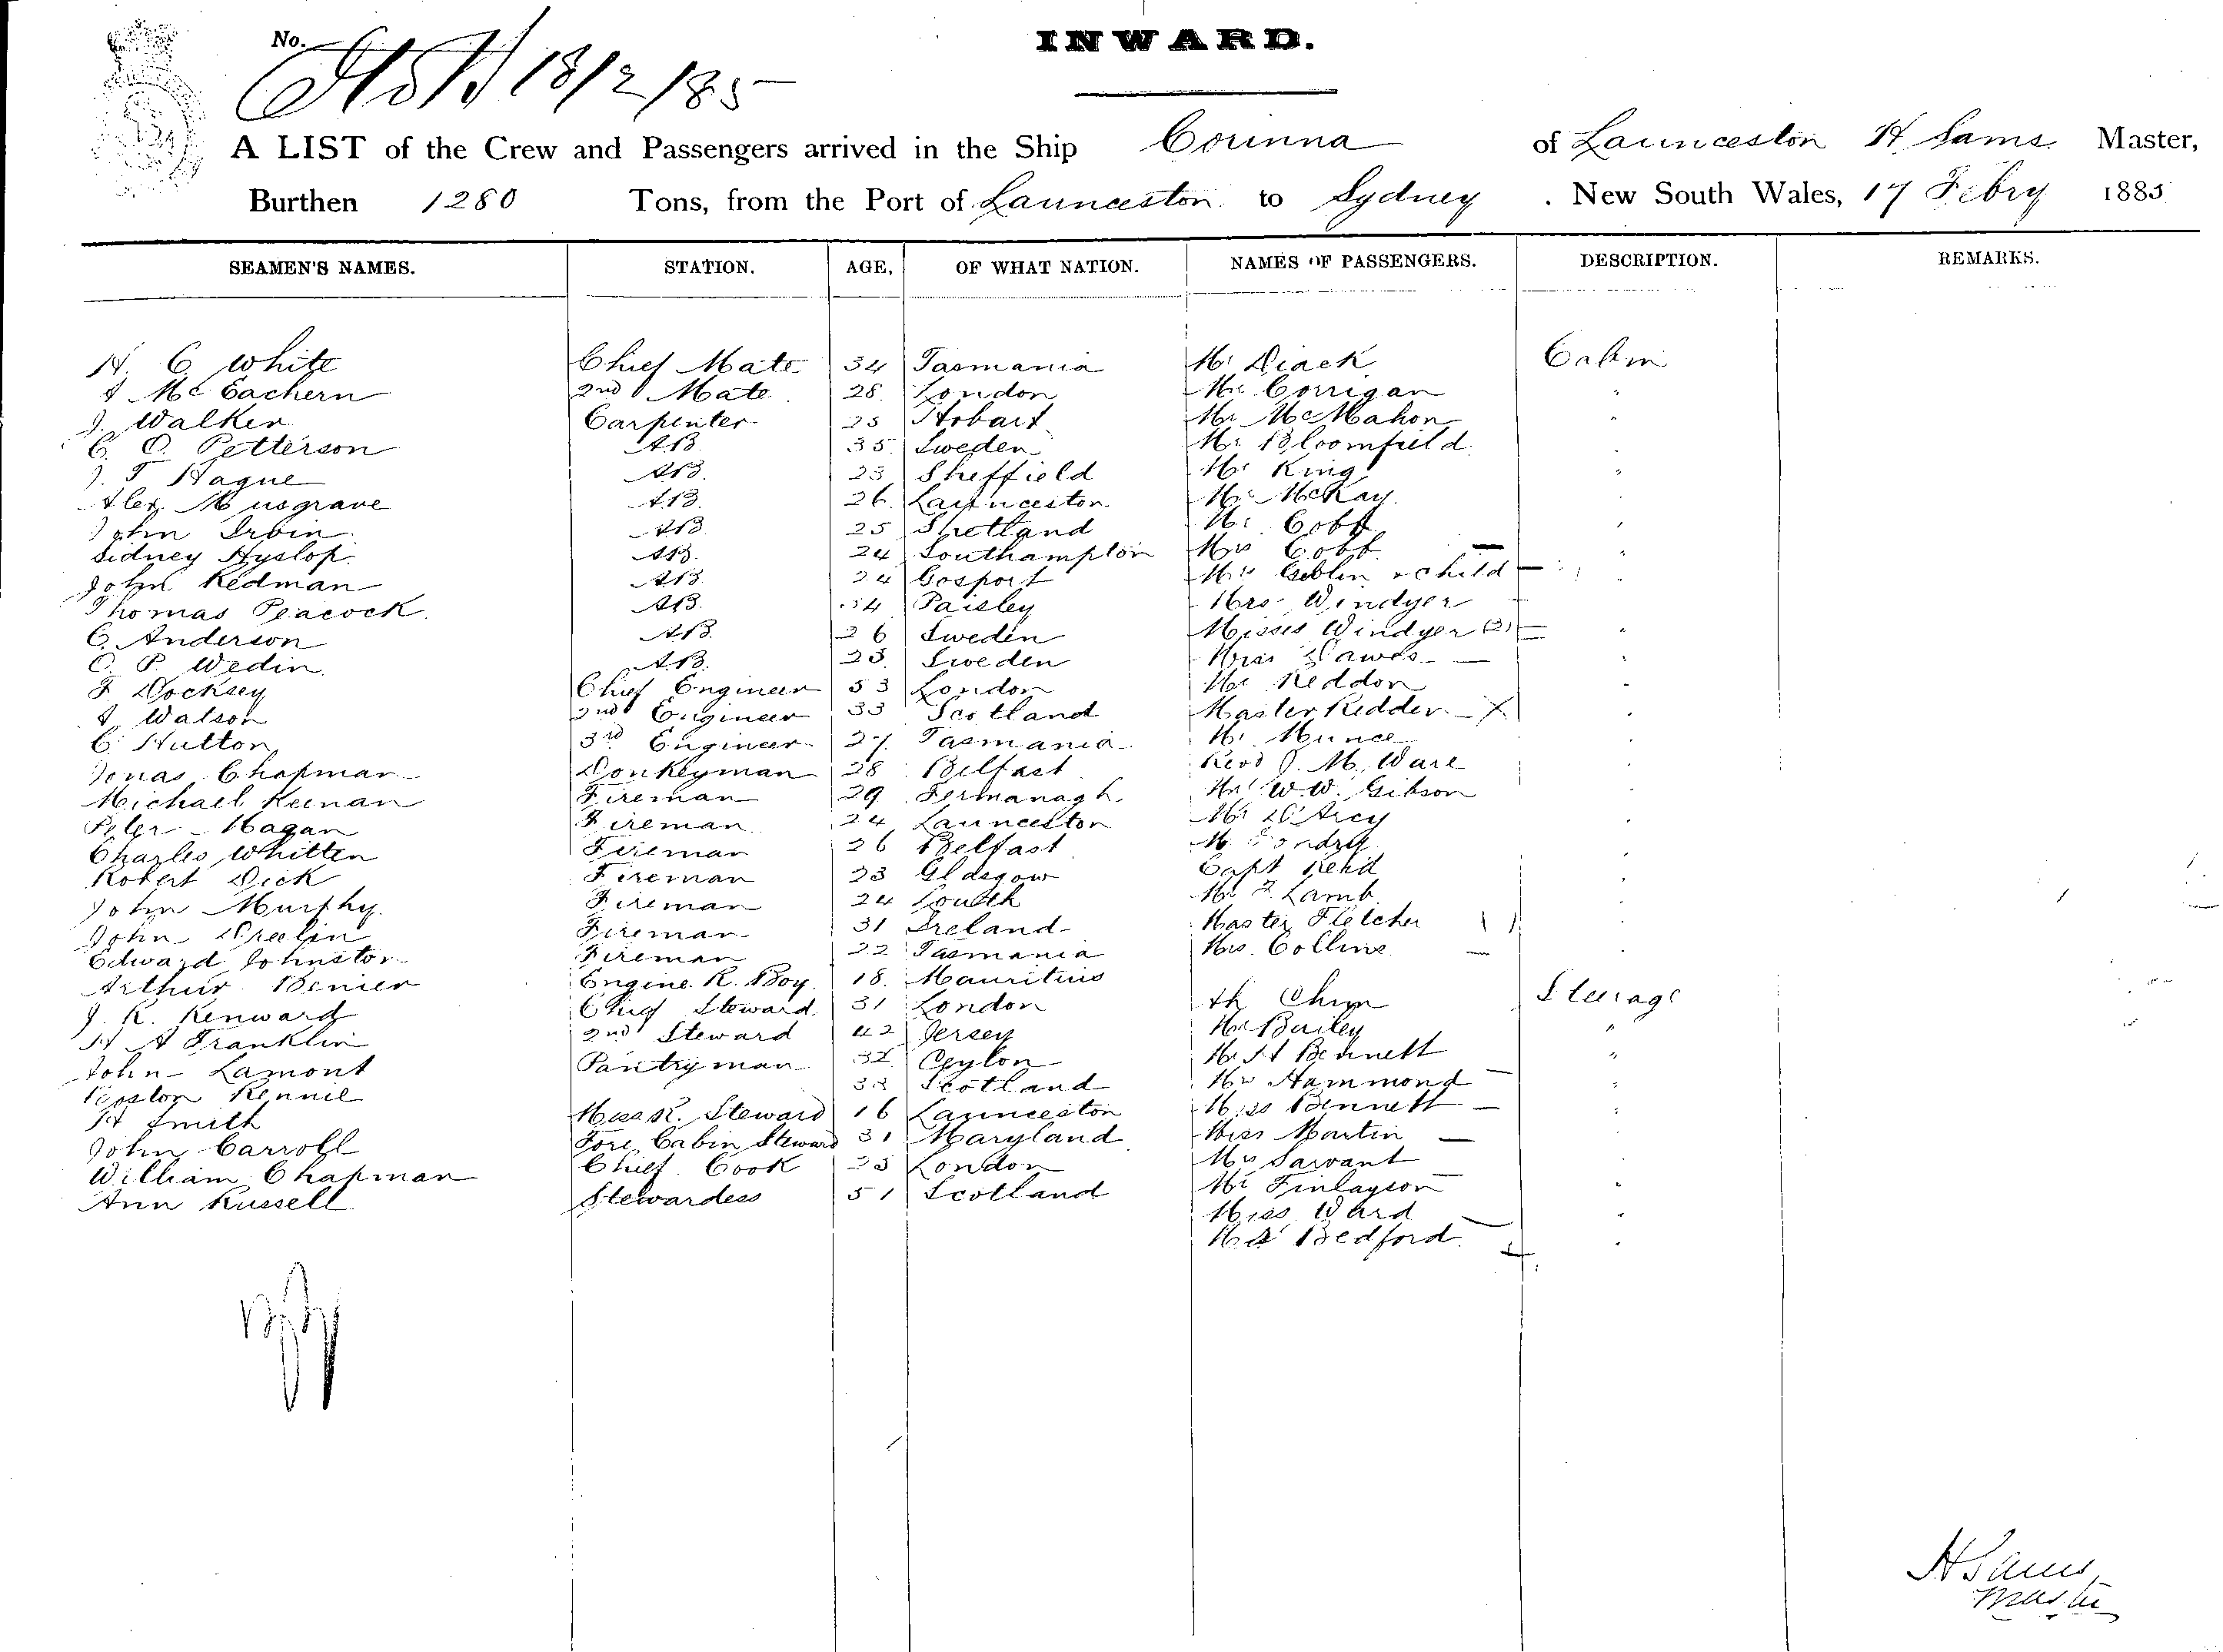 INWARD.
No.
18/2/85
A LIST of the Crew and Passengers arrived in the Ship Corinna of Launceston H Sams Master,
Burthen 1280 Tons, from the Port of Launceston to Sydney . New South Wales, 17 Febry 1885
SEAMEN'S NAMES. STATION. AGE, OF WHAT NATION. NAMES OF PASSENGERS. DESCRIPTION. REMARKS.
H. C. White Chief Mate 34 Tasmania Mr Diack Cabin
A Mc Eachern 2nd Mate 28 London Mr Corrigan "
J. Walker Carpenter 25 Hobart Mr McMahon "
C. O. Petterson AB 35 Sweden Mr Bloomfield
J. T Hague AB 23 Sheffield Mr King "
Alex. Musgrave AB 26 Launceston Mr McKay "
John Irvin AB 25 Shetland Mr Cobb "
Sidney Hyslop AB 24 Southampton Mrs Cobb "
John Redman AB 24 Gosport Mrs Giblin & child "
Thomas Peacock AB 34 Paisley Mrs Windyer
C. Anderson AB 26 Sweden Misses Windyer (2) "
C. P. Wedin AB 23 Sweden Miss Dawes "
F Docksey Chief Engineer 53 London Mr Reddon "
A Watson 2nd Engineer 33 Scotland Master "
C. Hutton 3rd Engineer 27 Tasmania Mr Munce "
Jonas Chapman Donkeyman 28 Belfast Revd J. M. Ware
Michael Keenan Fireman 29 Fermanagh Mr W. W. Gibson "
Peter Hagan Fireman 24 Launceston Mr "
Charles Whitten Fireman 26 Belfast
Robert Dick Fireman 23 Glasgow Capt "
John Murphy Fireman 24 Louth Mr F. Lamb "
John Fireman 31 Ireland Master Fletcher "
Edward Johnston Fireman 22 Tasmania Mrs Collins "
Arthur Engine R. Boy 18 Mauritius
J. R. Kenward Chief Steward 31 London Ah Steerage
H A Franklin 2nd Steward 42 Jersey Mr Bailey "
John Lamont Pantryman 32 Ceylon Mr H Bennett "
33 Scotland Mrs Hammond "
H Smith Steward 16 Launceston Miss Bennett "
John Carroll Fore Cabin Steward 31 Maryland Miss Martin
William Chapman Chief Cook 25 London Mr "
Ann Russell Stewardess 51 Scotland Mr Finlayson "
Miss Ward "
Bedford "
H Sams
Master